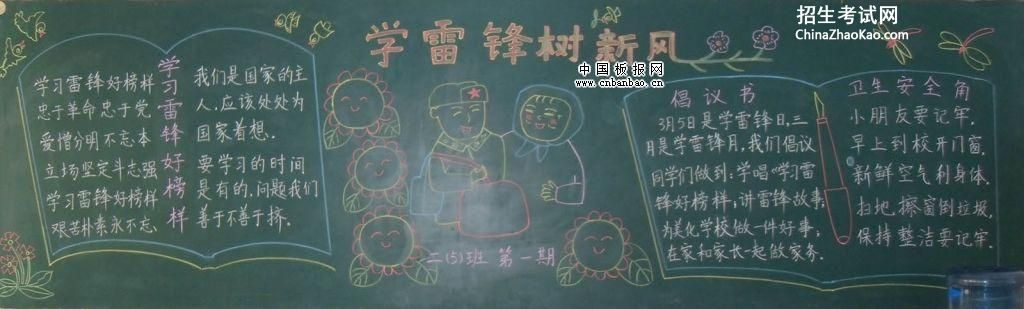 招生考试网
ChinaZhaoKao.com
学雷锋树新风
中国板报网
www.cnbanbao.cn
学习雷锋好榜样
学习雷锋好榜样
忠于革命忠于党
受憎分明不忘本
立场坚定斗志强
学习雷锋好榜样
艰苦朴素永不忘、
我们是国家的主
人，应该处处为
国家着想。
要学习的时间
是有的，问题我们
善于不善于挤。
二(5)班 第一期
倡议书
3月5日是学雷锋日，三
月是学雷锋月，我们倡议
同学们做到：学唱“学习雷
锋好榜样”；讲雷锋故事；
为美化学校做一件好事；
在家和家长一起做家务。
卫生安全角
小朋友要记牢，
早上到校开门窗，
新鲜空气利身体，
扫地擦窗倒垃圾，
保持整洁要记牢。